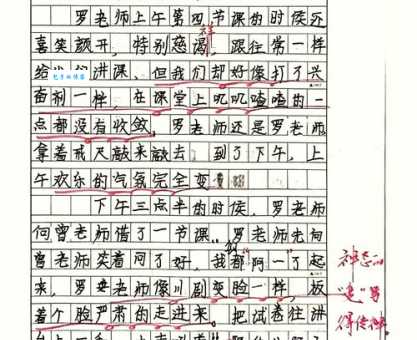 罗老师上午第四节课的时候还
祥
喜笑颜开，特别慈渴，跟往常一样
给我们讲课，但我们却好像打了兴
奋剂一样，在课堂上叽叽喳喳的一
点都没有收敛。罗老师还是罗老师
拿着戒尺敲来敲去，到了下午，上
午欢乐的气氛完全变
下午三点半的时候，罗老师
向曾老师借了一节课。罗老师先向
曾老师笑着问了好，我们都"阿一"了起
来，罗老师像川剧变脸一样，板
着个脸严肃的走进来。把试卷往讲
神态的
"变"写
得传神。